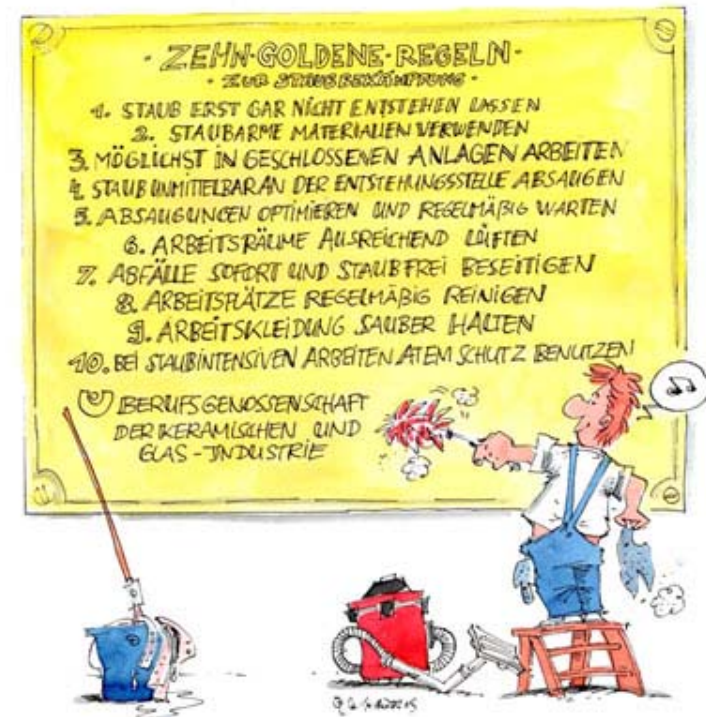 - ZEHN-GOLDENE-REGELN -
- ZUR STAUBBEKÄMPFUNG -
1. STAUB ERST GAR NICHT ENTSTEHEN LASSEN
2. STAUBARME MATERIALIEN VERWENDEN
3. MÖGLICHST IN GESCHLOSSENEN ANLAGEN ARBEITEN
4. STAUB UNMITTELBAR AN DER ENTSTEHUNGSSTELLE ABSAUGEN
5. ABSAUGUNGEN OPTIMIEREN UND REGELMÄßIG WARTEN
6. ARBEITSRÄUME AUSREICHEND LÜFTEN
7. ABFÄLLE SOFORT UND STAUBFREI BESEITIGEN
8. ARBEITSPLÄTZE REGELMÄßIG REINIGEN
9. ARBEITSKLEIDUNG SAUBER HALTEN
10. BEI STAUBINTENSIVEN ARBEITEN ATEMSCHUTZ BENUTZEN
BERUFSGENOSSENSCHAFT
DER KERAMISCHEN UND
GLAS-INDUSTRIE